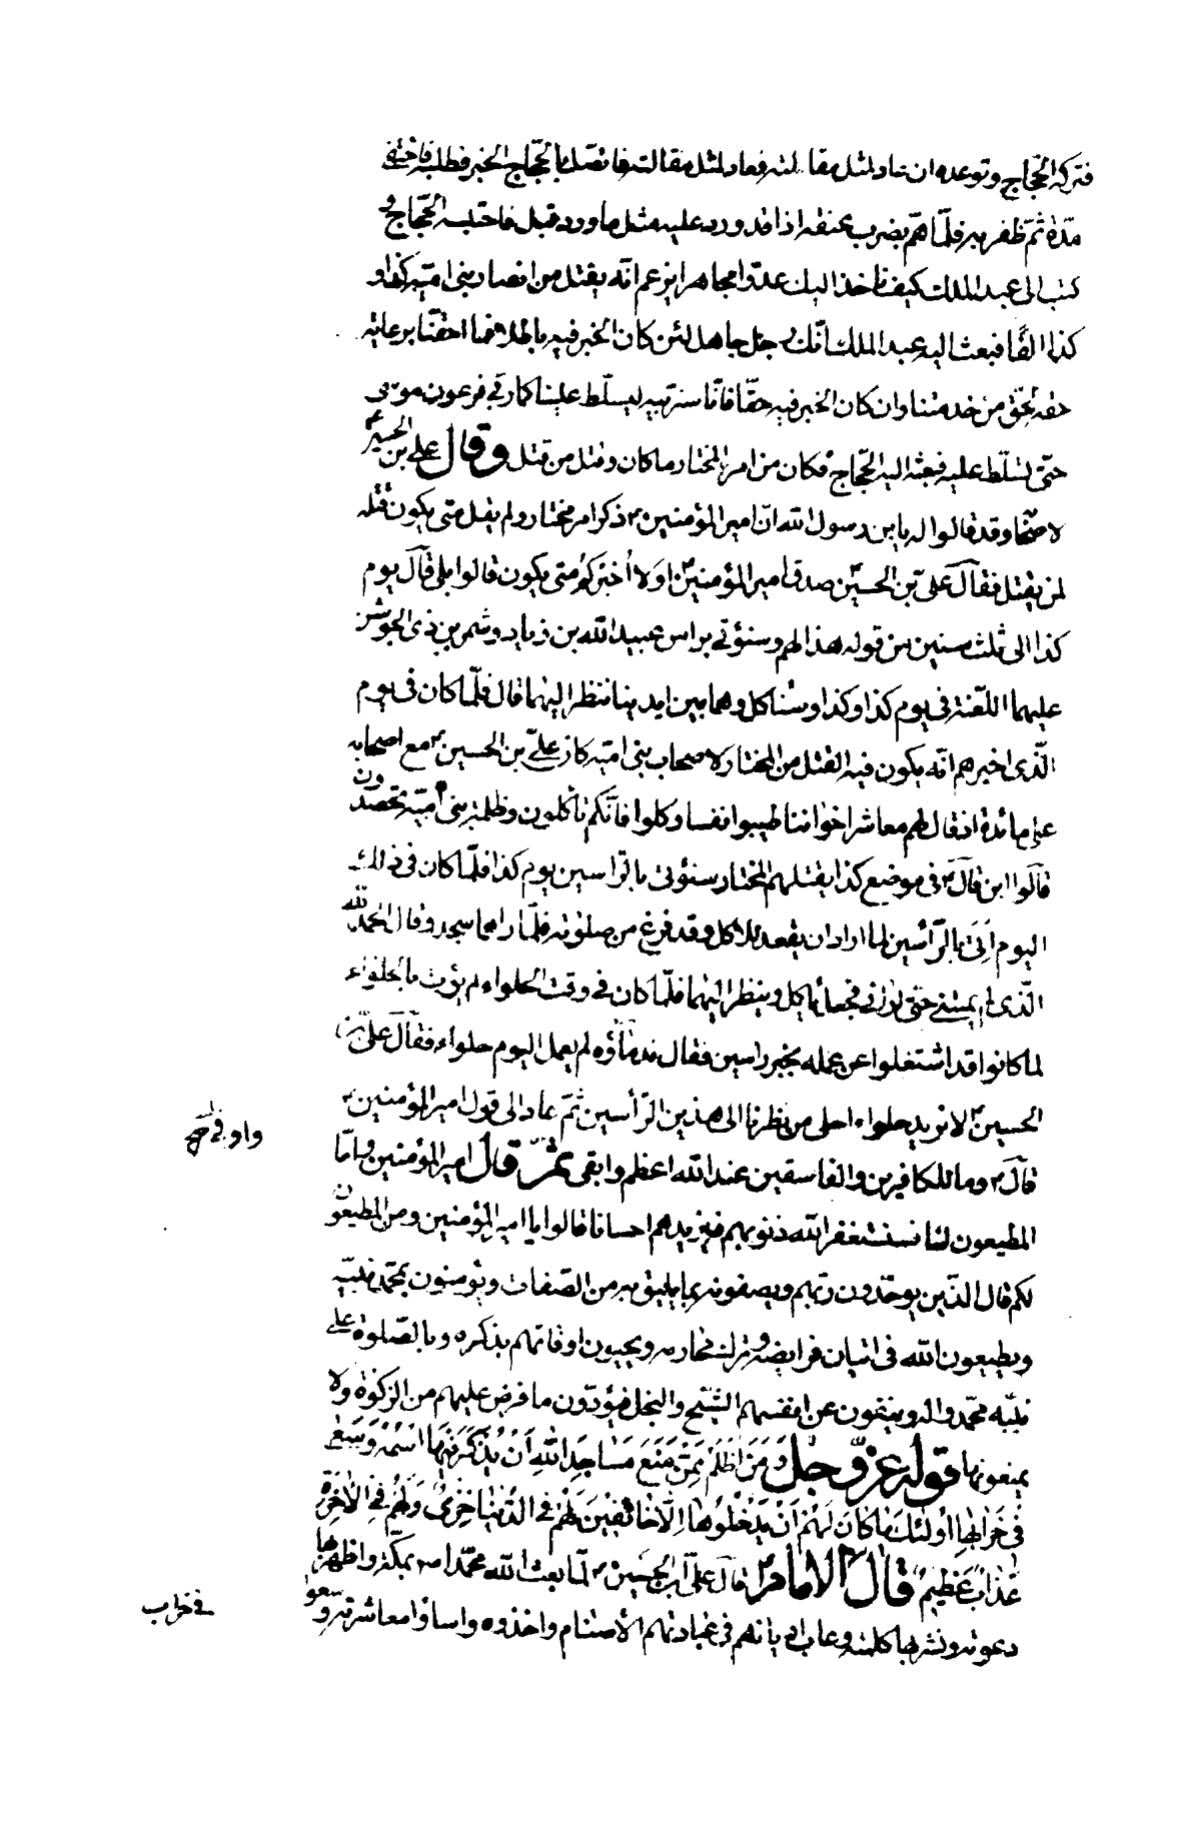 فتركه الحجّاج وتوعده ان عاد لمثل مقالته فعاد لمثل مقالته فاتصل بالحجّاج الخبر فطلبه فاختفى
مدّة ثمّ ظفر به فلمّا همّ بضرب عنقه اذا قد ورد عليه مثل ما ورد قبل فاحتبسه الحجّاج و
كتب الى عبد الملك كيف تاخذ اليك عدوّا مجاهرا يزعم انّه يقتل من انصار بنى اميّة كذا و
كذا الفًا فبعث اليه عبد الملك انّك رجل جاهل لئن كان الخبر فيه باطلا فما احقنا برعاية
حقه لحقّ من خدمتنا وان كان الخبر فيه حقّا فانّا سنربّيه ليسلّط علينا كما ربّى فرعون موسى
حتّى تسلّط عليه فبعثه اليه الحجّاج فكان من امر المختار ما كان وقتل من قتل وقال على بن الحسين
لاصحابه وقد قالوا له يا بن رسول الله انّ امير المؤمنين ذكر امر مختار ولم يقل متى يكون قتله
لمن يقتل فقال علىّ بن الحسين صدق امير المؤمنين اولا اخبركم متى يكون قالوا بلى قال يوم
كذا الى ثلث سنين من قوله هذا لهم وسنؤتى براس عبيد الله بن زياد وشمر بن ذى الجوشن
عليهما اللّعنة فى يوم كذا وكذا وسناكل وهما بين ايدينا ننظر اليهما قال فلمّا كان فى يوم
الّذى اخبرهم انّه يكون فيه القتل من المختار لاصحاب بنى اميّة كان علىّ بن الحسين مع اصحابه
على مائدة اذ قال لهم معاشر اخواننا طيبوا نفسا وكلوا فانّكم تأكلون وظلمة بنى اميّة يحصدون
قالوا اين قال فى موضع كذا يقتلهم المختار سنؤتى بالرّاسين يوم كذا فلمّا كان فى ذلك
اليوم اتى بالرّأسين لما اراد ان يقعد للاكل وقد فرغ من صلوته فلمّا راهما سجد وقال الحمد لله
الّذى لم يمتنى حتّى ارانى فجعل ياكل وينظر اليهما فلمّا كان فى وقت الحلواء لم يؤت بالحلواء
لما كانوا قد اشتغلوا عن عمله بخبر راسين فقال ندماؤه لم يعمل اليوم حلواء فقال علىّ بن
الحسين لا نريد حلواء احلى من نظرنا الى هذين الرّأسين ثمّ عاد الى قول امير المؤمنين
قال وما للكافرين والفاسقين عند الله اعظم وابقى ثمّ قال امير المؤمنين وامّا
المطيعون لنا فسنستغفر الله ذنوبهم فيزيدهم احسانا قالوا يا امير المؤمنين ومن المطيعون
لكم قال الّذين يوحّدون ربّهم ويصفونه بما يليق به من الصّفات ويؤمنون بمحمّد نبيّه
ويطيعون الله فى اتيان فرايضه وترك محارمه ويحيون اوقاتهم بذكره وبالصّلوة على
نبيّه محمّد واله وينفون عن انفسهم الشّحّ والبخل فيؤدّون ما فرض عليهم من الزكوة ولا
يمنعونها قوله عزّ وجل وَمَنْ اَظْلَمُ مِمَّنْ مَنَعَ مَسَاجِدَ اللهِ اَنْ يُذْكَرَ فِيهَا اسْمُهُ وَسَعٰى
فِى خَرَابِهَا اُولٰئِكَ مَا كَانَ لَهُمْ اَنْ يَدْخُلُوهَا اِلَّا خَائِفِينَ لَهُمْ فِى الدُّنْيَا خِزْىٌ وَلَهُمْ فِى الْاٰخِرَةِ
عَذَابٌ عَظِيمٌ قال الامام قال علىّ بن الحسين لمّا بعث الله محمّدا بمكّة واظهر بها
دعوته ونشر بها كلمته وعاب اديانهم فى عبادتهم الاصنام واخذوه واساؤا معاشرته وسعوا
فى خراب